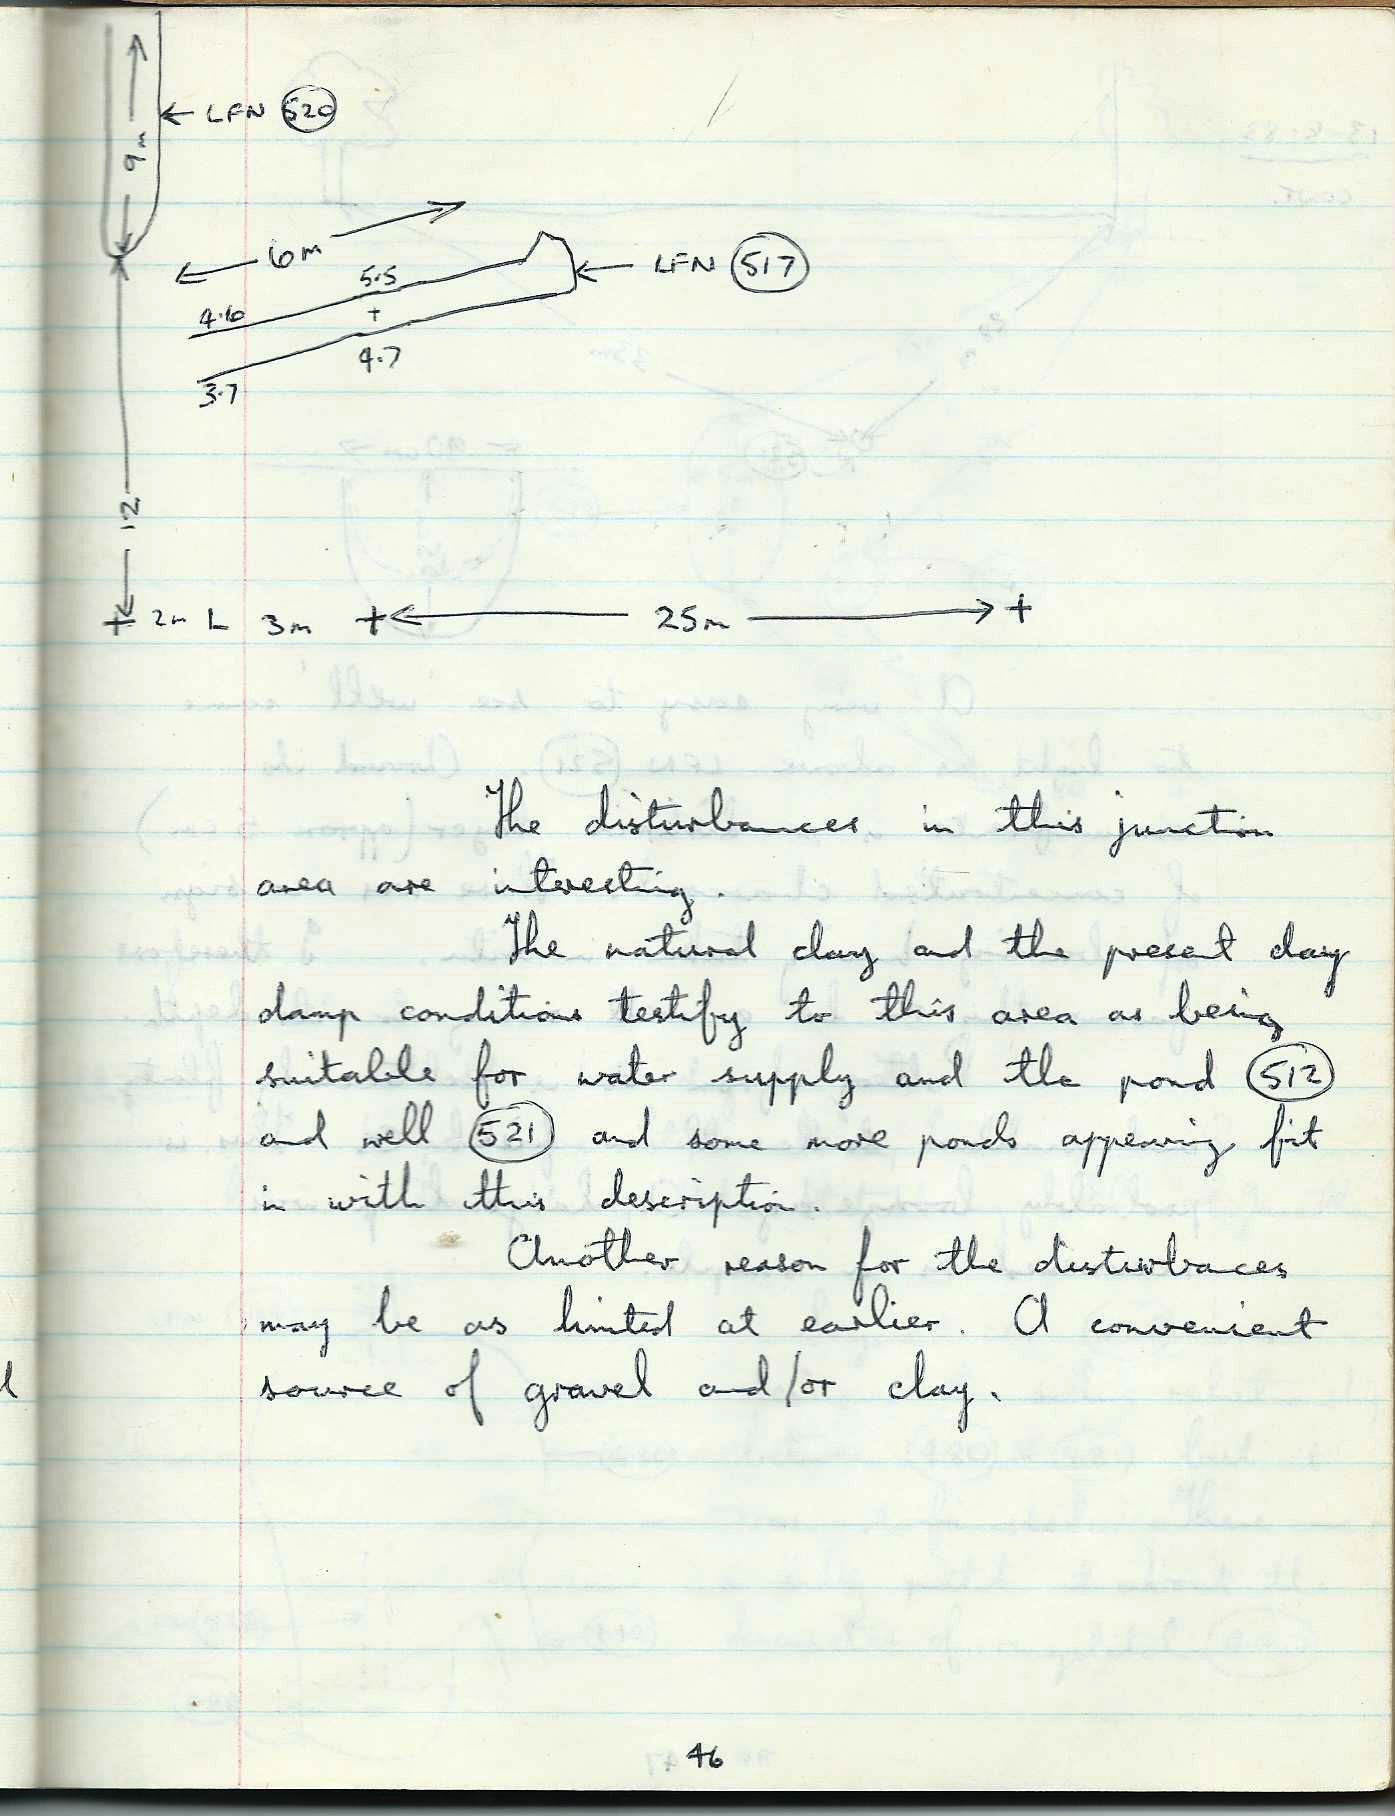 9m
← LFN 520
6m
5.5
← LFN 517
4.6
+
4.7
3.7
12
+ 2m L 3m + 25m +
The disturbances in this junction
area are interesting.
The natural clay and the present day
damp conditions testify to this area as being
suitable for water supply and the pond 512
and well 521 and some more ponds appearing fit
in with this description.
Another reason for the disturbaces
may be as hinted at earlier. A convenient
source of gravel and/or clay.
46